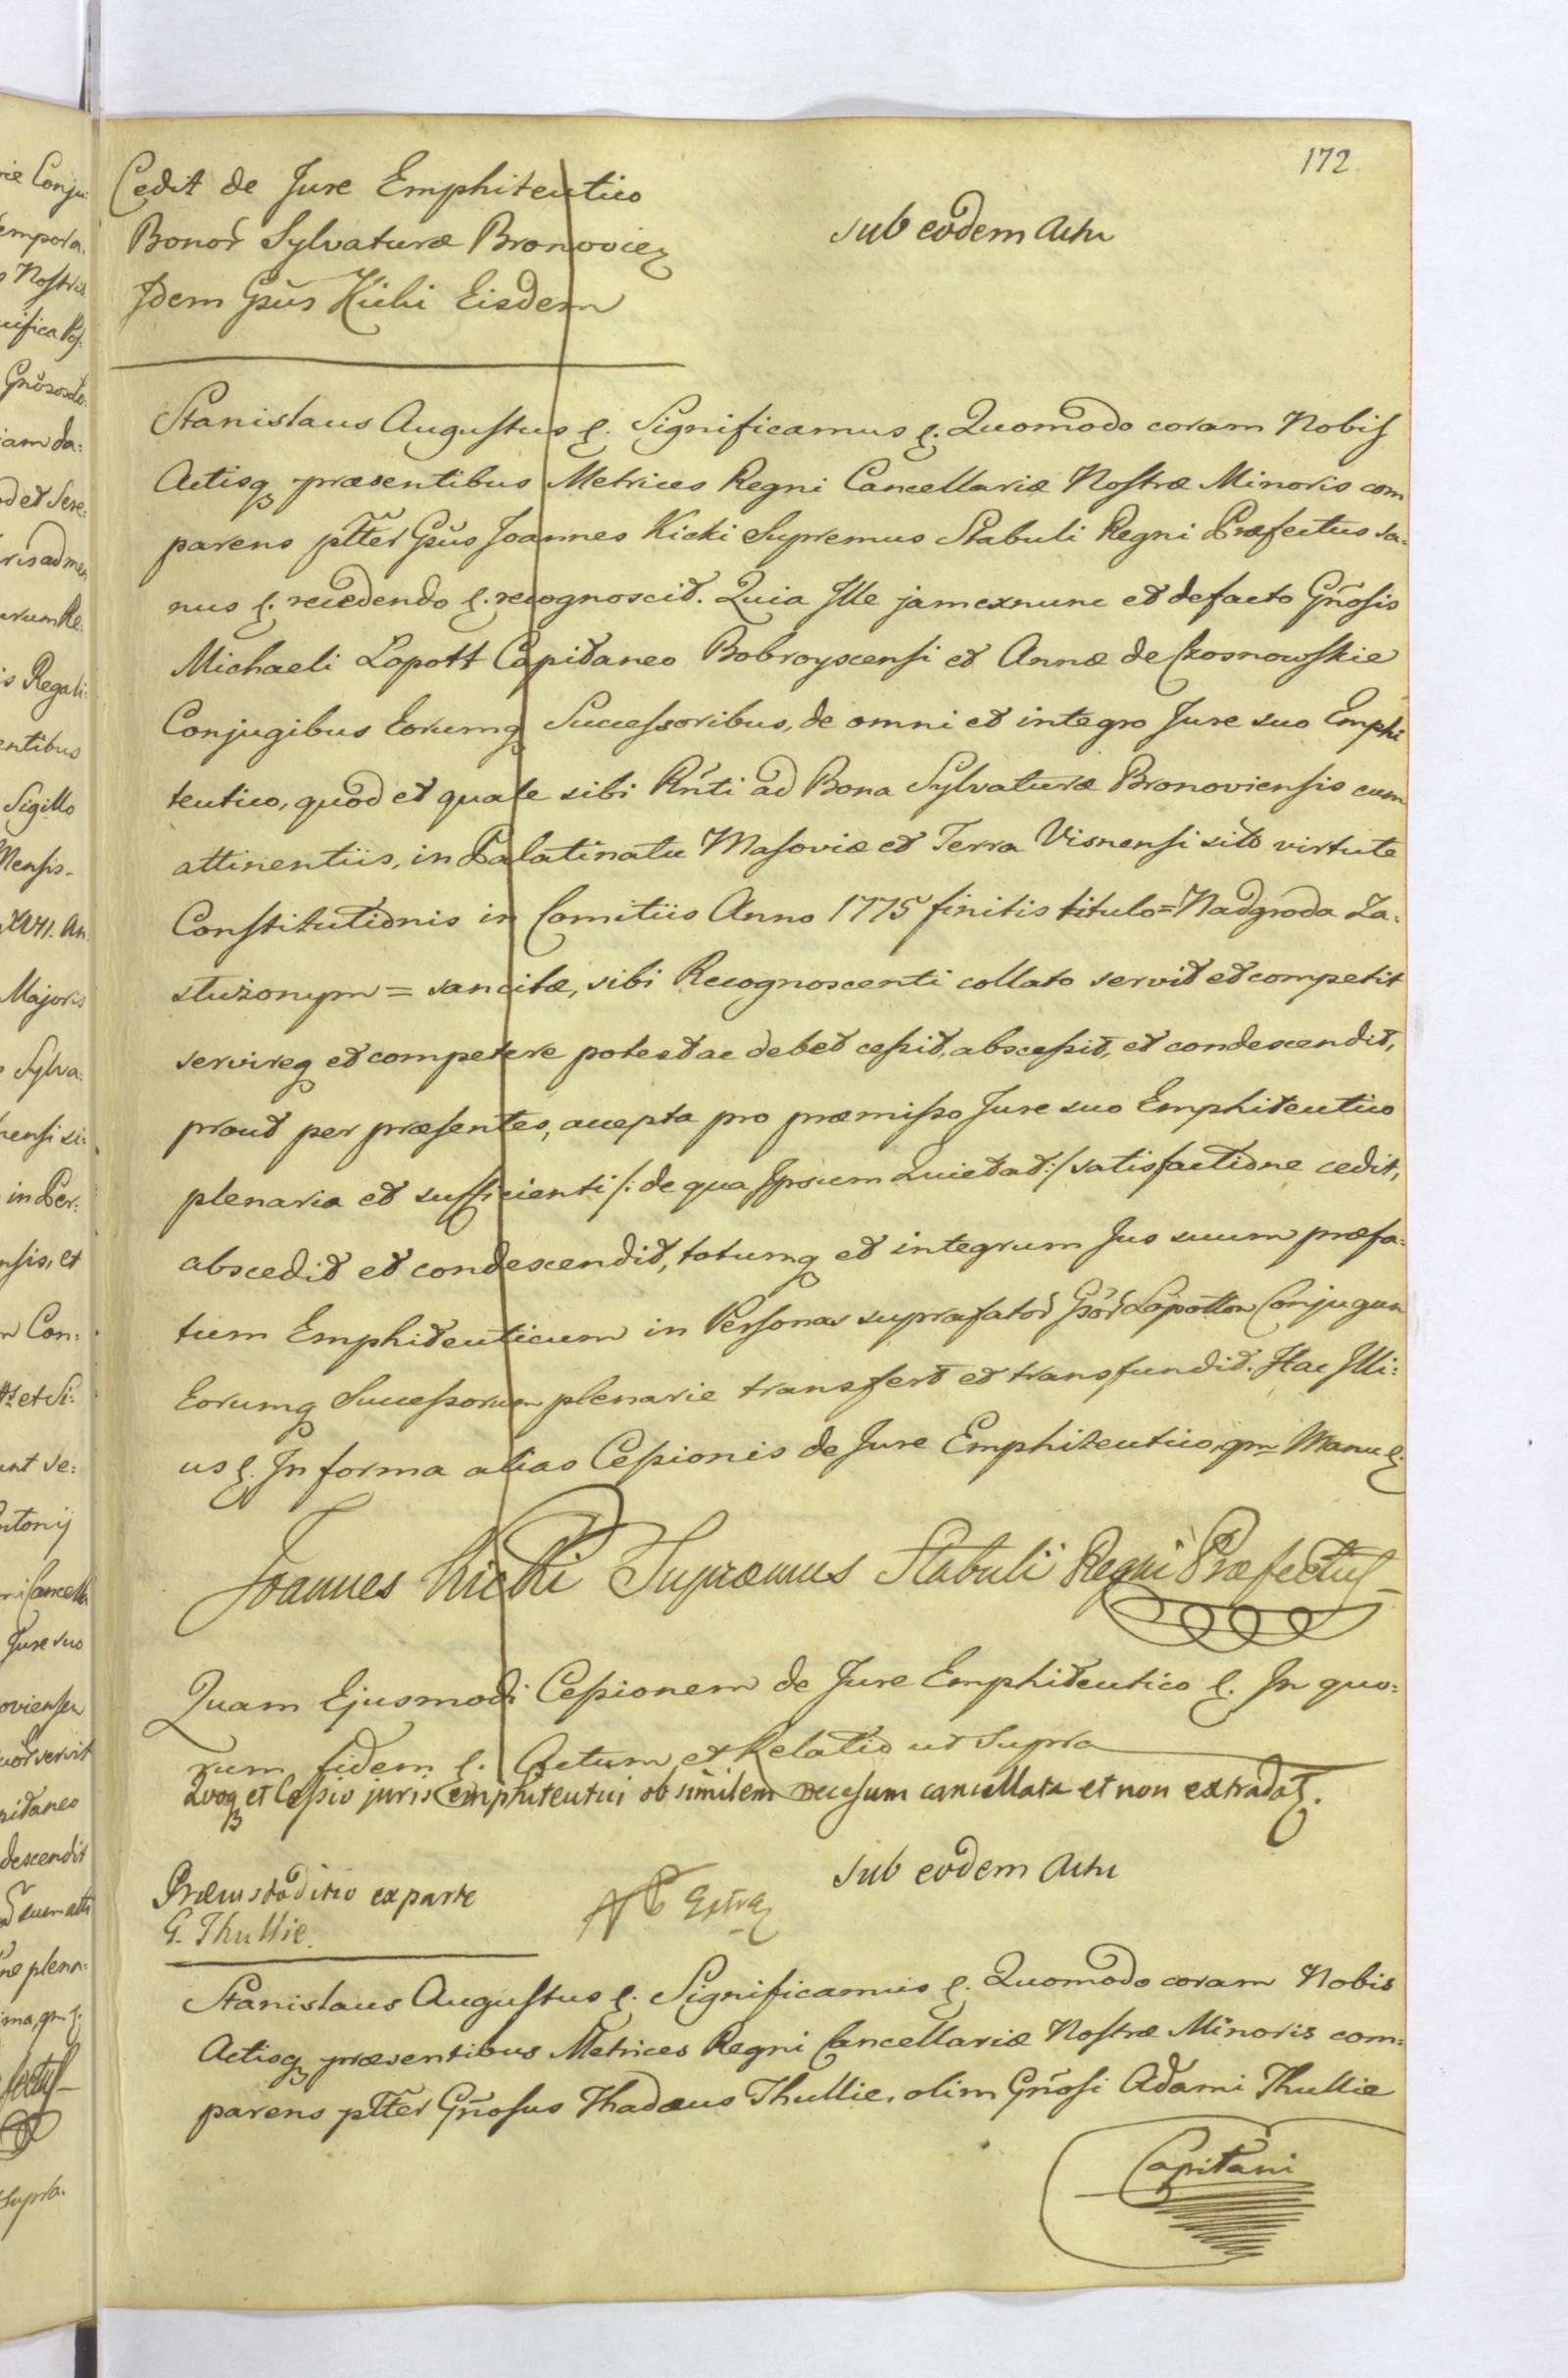 172
Cedit de Jure Emphiteutico
Bonoř Sylvaturæ Bronoviez
Jdem Gsũs Kicki Eisdem
sub eodem Actu
Stanislaus Augustus ę. Significamus ę. Quomodo coram Nobis
Actisqȝ præsentibus Metrices Regni Cancellariæ Nostræ Minoris com
parens ptter Gsũs Joannes Kicki Supremus Stabuli Regni Præfectus sa=
nus ę. recedendo ę. recognoscit. Quia Jlle jam exnunc et defacto Gñosis
Michaeli Lopott Capitaneo Bobroyscensi et Annæ de Czosnowskie
Conjugibus Eorumqȝ Successoribus, de omni et integro Jure suo Emphi
teutico, quod et quale sibi Rñti ad Bona Sylvaturæ Bronoviensis cum
attinentiis, in Palatinatu Masoviæ et Terra Visnensi sito virtute
Constitutionis in Comitiis Anno 1775 finitis titulo = Nadgroda Za=
służonym = sancitæ, sibi Recognoscenti collato servit et competit
servireqȝ et competere potest ac debet cessit, abscessit, et condescendit,
prout per præsentes, accepta pro præmisso Jure suo Emphiteutico
plenaria et sufficienti /: de qua Jpsum Quietat :/ satisfactione cedit,
abscedit et condescendit, totumqȝ et integrum Jus suum præfa=
tum Emphiteuticum in Personas suprafatoř Gsoř Lopottow Conjugum
Eorumqȝ Successorum plenarie transfert et transfundit. Hac Jlli=
us ę. Jn forma alias Cessionis de Jure Emphiteutico, qm Manu ę.
Joannes Kicki Supræmus Stabuli Regni Præfectus
Quam Ejusmodi Cessionem de Jure Emphiteutico ę. Jn quo=
rum fidem ę. Actum et Relatio ut Supra
Quoqȝ et Cessio juris emphiteutici ob similem recessum cancellata et non extradat.
sub eodem Actu
ex parte
G. Thullie.
Extra
Stanislaus Augustus ę. Significamus ę. Quomodo coram Nobis
Actisqȝ præsentibus Metrices Regni Cancellariæ Nostræ Minoris com=
parens ptter Gñosus Thadæus Thullie, olim Gñosi Adami Thullie
Capitani